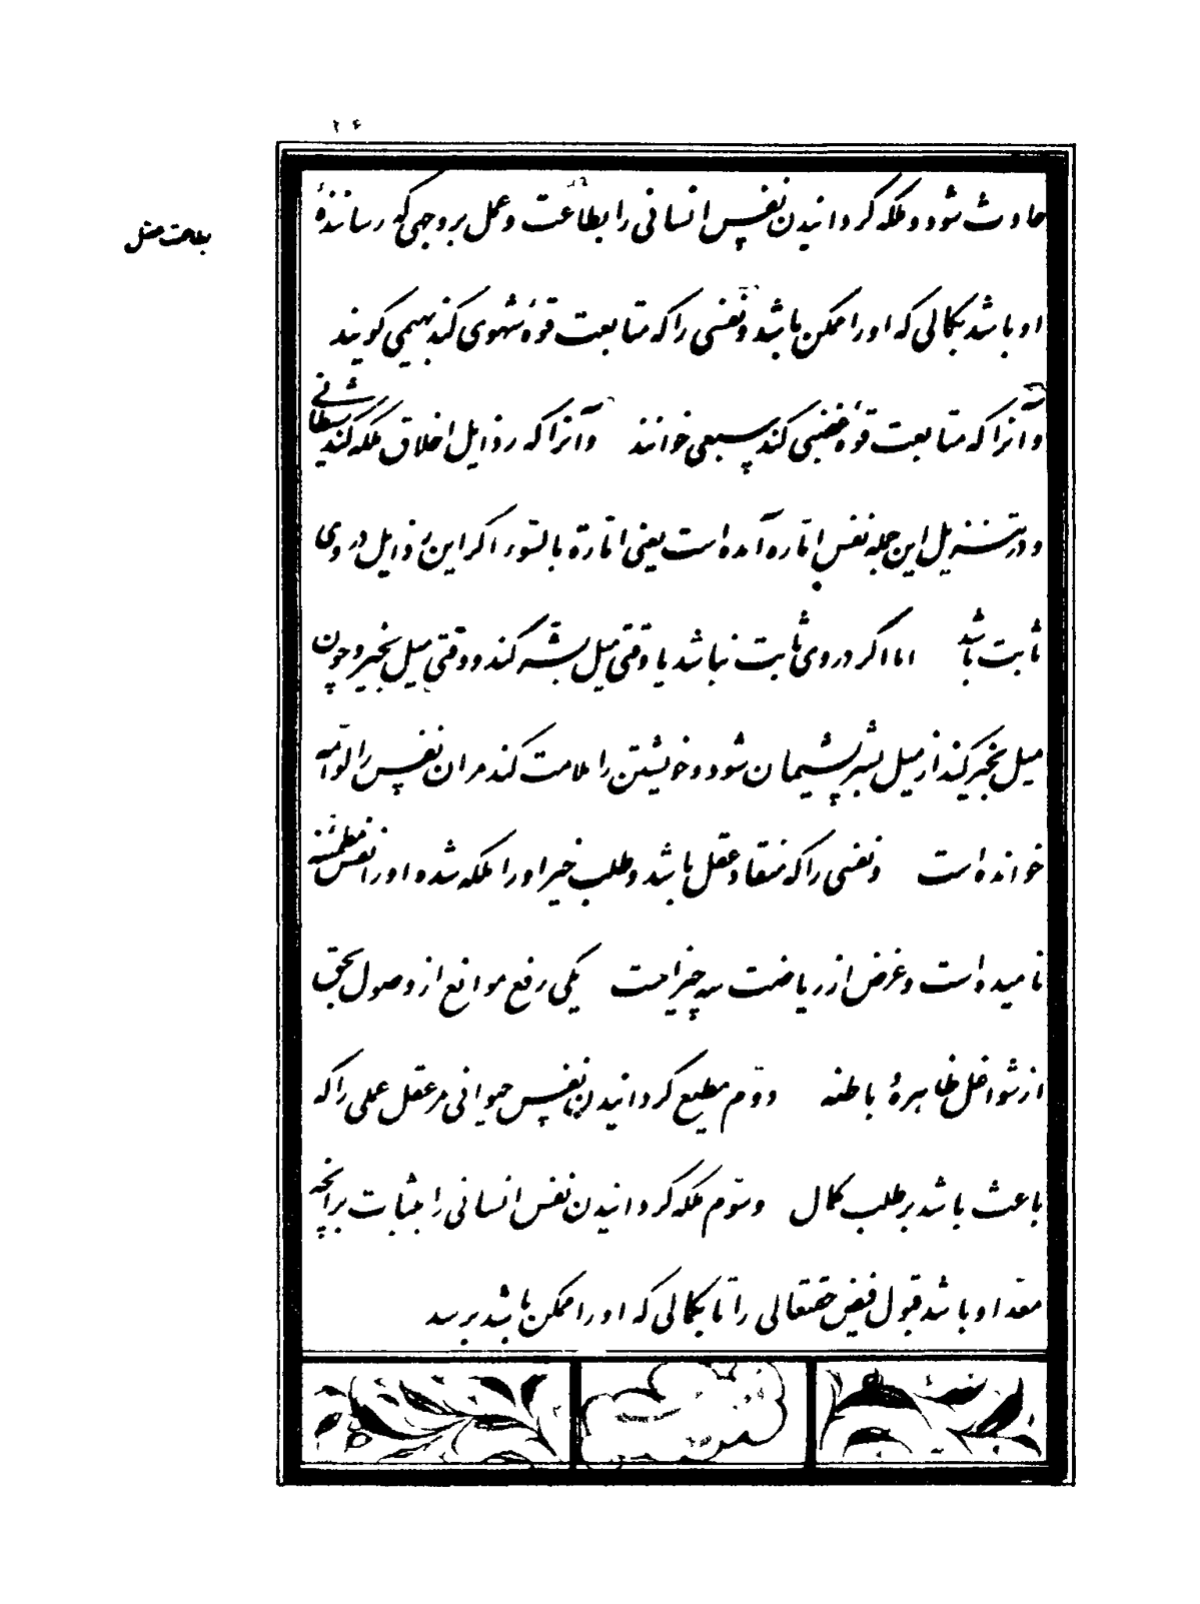 ۲۶
حادث شود و ملکه گردانیدن نفس انسانی را بطاعت و عمل بر وجهی که رسانندهٔ
بطاعت عقل
او باشد بکمالی که او را ممکن باشد و نفسی را که متابعت قوهٔ شهوی کند بهیمی گویند
و آنرا که متابعت قوهٔ غضبی کند سبعی خوانند و آنرا که رذایل اخلاق ملکه کند شیطانی
و در تنزیل این جمله نفس اماره آمده است یعنی امارة بالسوء اگر این رذایل در وی
ثابت باشد اما اگر در وی ثابت نباشد یا وقتی میل بشر کند و وقتی میل بخیر و چون
میل بخیر کند از میل بشر پشیمان شود و خویشتن را ملامت کند مر آن نفس را لوامه
خوانده است و نفسی را که منقاد عقل باشد و طلب خیر او را ملکه شده او را نفس مطمئنه
نامیده است و غرض از ریاضت سه چیز است یکی رفع موانع از وصول بحق
از شواغل ظاهرهٔ باطنه دوم مطیع گردانیدن نفس حیوانی مر عقل عملی را که
باعث باشد بر طلب کمال و سوم ملکه گردانیدن نفس انسانی را بثبات بر آنچه
معد او باشد قبول فیض حقتعالی را تا بکمالی که او را ممکن باشد برسد